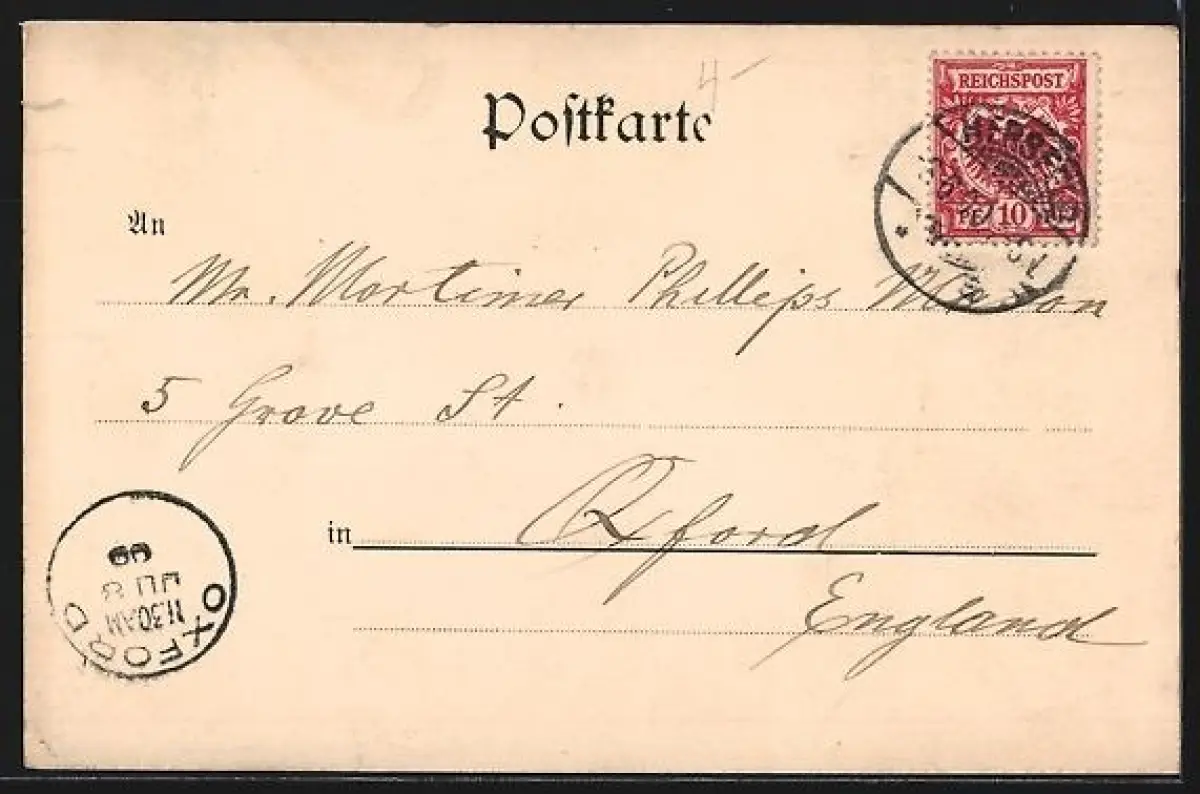 4
Postkarte
REICHSPOST
10
An
Mr. Mortimer Phillips
5 Grove St.
in Oxford
England
OXFORD
11.30AM
JU 8
99